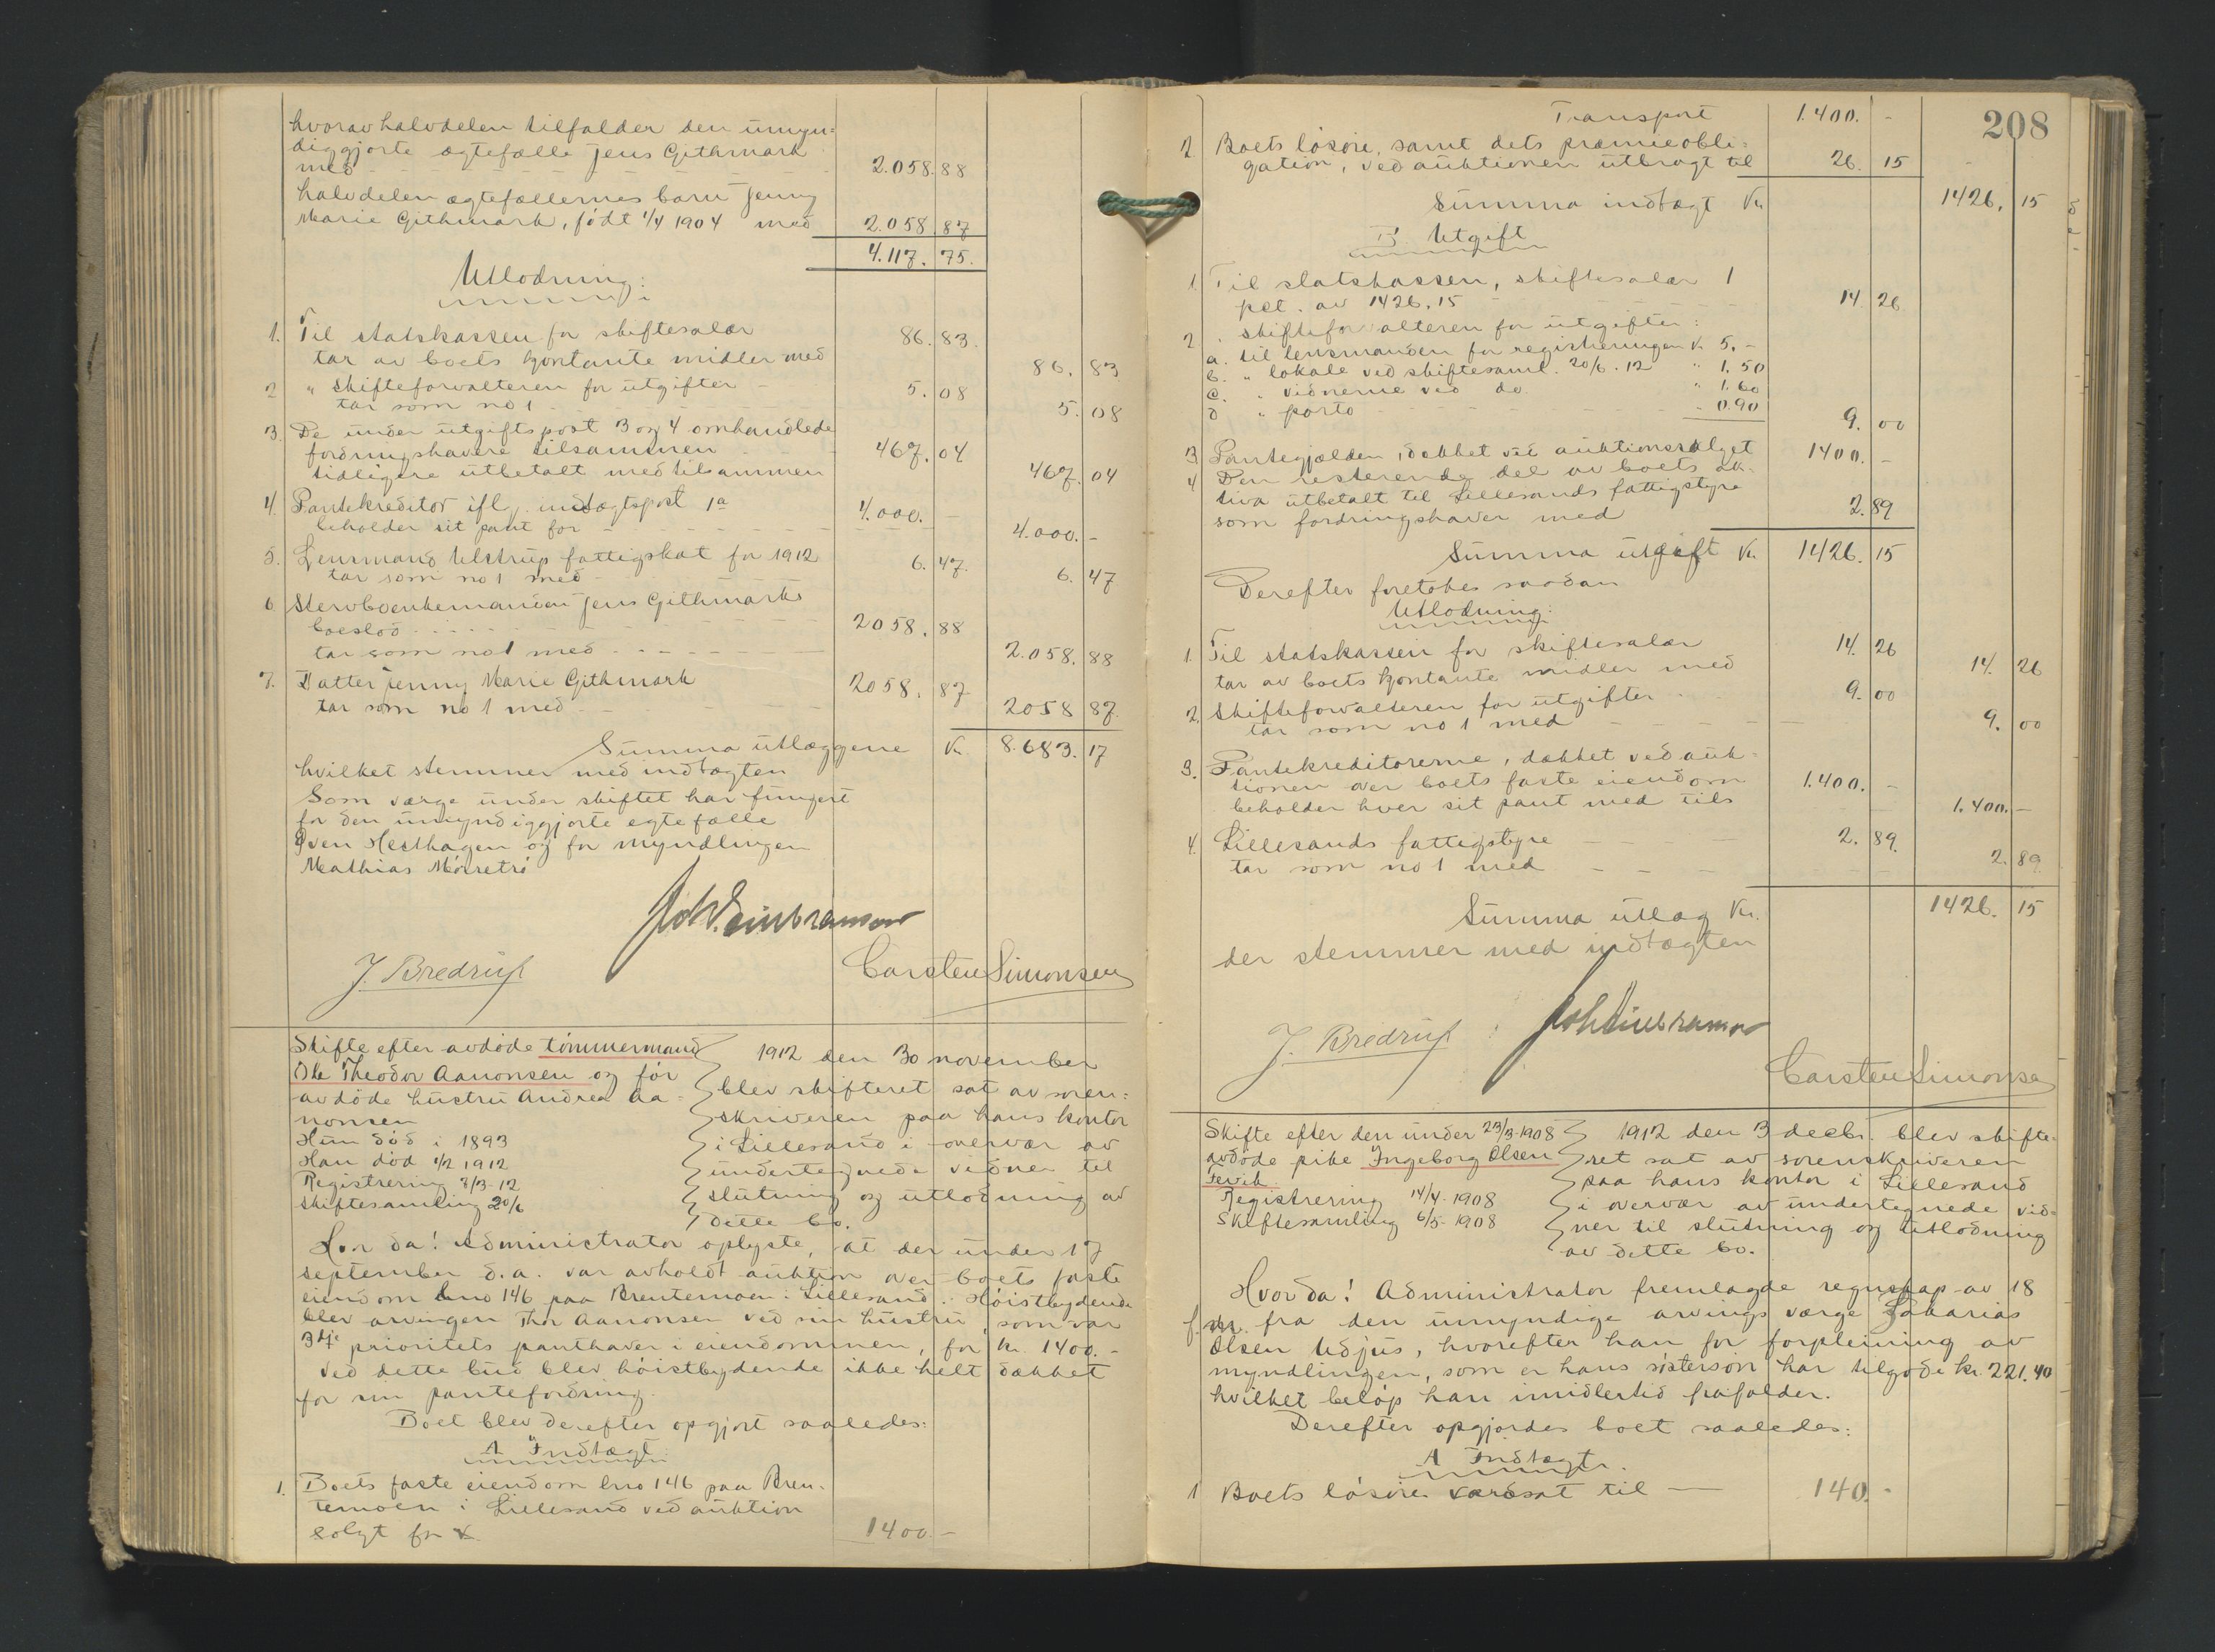 hvorav halvdelen tilfalder den umyn=
diggjorte ægtefælle Jens Githmark
med 2.058.88
halvdelen ægtefællernes barn Jenny
Marie Githmark, født 1/4 1904 med 2.058 87
4.117. 75.
Utlodning:
1. Til statskassen for skiftesalær 86. 83.
tar av boets kontante midler med 86. 83
2 " Skifteforvalteren for utgifter - 5. 08
tar som no 1 5. 08
3. De under utgiftspost 3 og 4 omhandlede
fordringshavere tilsammen 467. 04
tidligere utbetalt med tilsammen 467. 04
4. Pantekreditor ifl. indtægtspost 1a 4.000. -
beholder sit pant for 4.000. -
5. Lensmand Ulstrup fattigskat for 1912 6. 47.
tar som no 1 med 6. 47
6 Stervboenkemanden Jens Githmarks
boeslod 2058. 88
tar som no 1 med 2.058. 88
7. Datter Jenny Marie Githmark 2058. 87
tar som no 1 med 2058 87
Summa utlæggene Kr. 8.683. 17
hvilket stemmer med indtægten
Som værge under skiftet har fungert
for den umyndiggjorte egtefælle
Sven Hesthagen og for myndlingen
Mathias
J. Bredrup
Carsten Simonsen
Skifte efter avdøde tømmermand
Ole Theodor Aanonsen og før
avdøde hustru Andrea Aa=
nonsen
Hun død i 1893
Han død 1/2 1912
Registrering 8/3-12
Skiftesamling 20/6
1912 den 30 november
blev skifteret sat av soren:
skriveren paa hans kontor
i Lillesand i overvær av
undertegnede vidner til
slutning og utlodning av
dette bo.
Hvor da! Administrator oplyste, at der under 17
september d.a. var avholdt auktion over boets faste
eiendom lno 146 paa Brentemoen i Lillesand. Høistbydende
blev arvingen Thor Aanonsen ved sin hustru, som var
3dje prioritets panthaver i eiendommen, for kr. 1400.-
Ved dette bud blev høistbydende ikke helt dækket
for sin pantefordring.
Boet blev derefter opgjort saaledes:
A Indtægt.
1. Boets faste eiendom lno 146 paa Bren-
temoen i Lillesand ved auktion
solgt for 1400. -
208
Transport 1.400. -
2. Boets løsøre, samt dets præmieobli-
gation, ved auktionen utbragt til 26. 15
Summa indtægt Kr. 1426. 15
B. Utgift
1. Til statskassen, skiftesalær 1
pct. av 1426.15 14. 26
2. " skifteforvalteren for utgifter:
a. til lensmanden for registreringen Kr. 5. -
b. " lokale ved skiftesaml. 20/6. 12 " 1. 50
c. " vidnerne ved do " 1. 60
d " porto " 0.90 9. 00
3. Pantegjælden, dækket ved auktionssalget 1400. -
4 Den resterende del av boets ak-
tiva utbetalt til Lillesands fattigstyre
som fordringshaver med 2. 89
Summa utgift Kr. 1426. 15
Derefter foretokes saadan
Utlodning:
1. Til statskassen for skiftesalær 14. 26
tar av boets kontante midler med 14. 26
2. Skifteforvalteren for utgifter 9. 00
tar som no 1 med 9. 00
3. Pantekreditorerne, dækket ved auk-
tionen over boets faste eiendom 1.400. -
beholder hver sit pant med tils 1.400. -
4. Lillesands fattigstyre 2. 89.
tar som no 1 med 2. 89
Summa utlæg Kr. 1426. 15
der stemmer med indtægten
J. Bredrup
Carsten Simonsen
Skifte efter den under 23/3 1908
avdøde pike Ingeborg Olsen
Fevik.
Registrering 14/4. 1908
Skiftesamling 6/5 1908
1912 den 3 decbr. blev skifte-
ret sat av sorenskriveren
paa hans kontor i Lillesand
i overvær av undertegnede vid-
ner til slutning og utlodning
av dette bo.
Hvor da! Administrator fremlagde regnskap av 18
f. fra den umyndige arvings værge Zakarias
Olsen Udjus, hvorefter han for forpleining av
myndlingen, som er hans søstersøn har tilgode kr. 221.40
hvilket beløp han imidlertid frafalder.
Derefter opgjordes boet saaledes:
A Indtægt.
1 Boets løsøre værdsat til 140. -